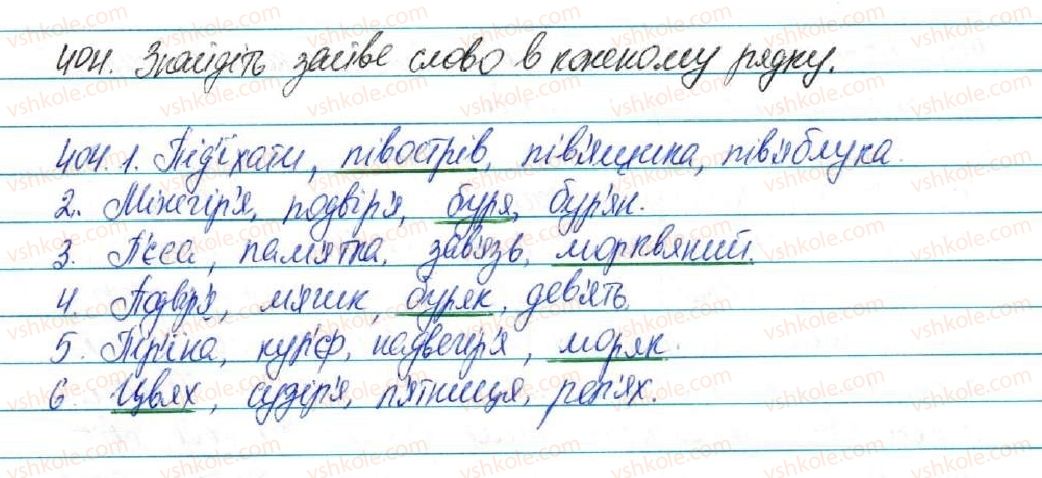 404. Знайдіть зайве слово в кожному рядку.
404. 1. Під'їхати, півострів, пів'ящика, пів'яблука.
2. Міжгір'я, подвір'я, буря, бур'ян.
3. П'єса, пам'ятка, зав'язь, морквяний.
4. Подвір'я, м'ячик, буряк, дев'ять.
5. Пір'їна, кур'єр, надвечір'я, моряк.
6. Цвях, сузір'я, п'ятниця, реп'ях.